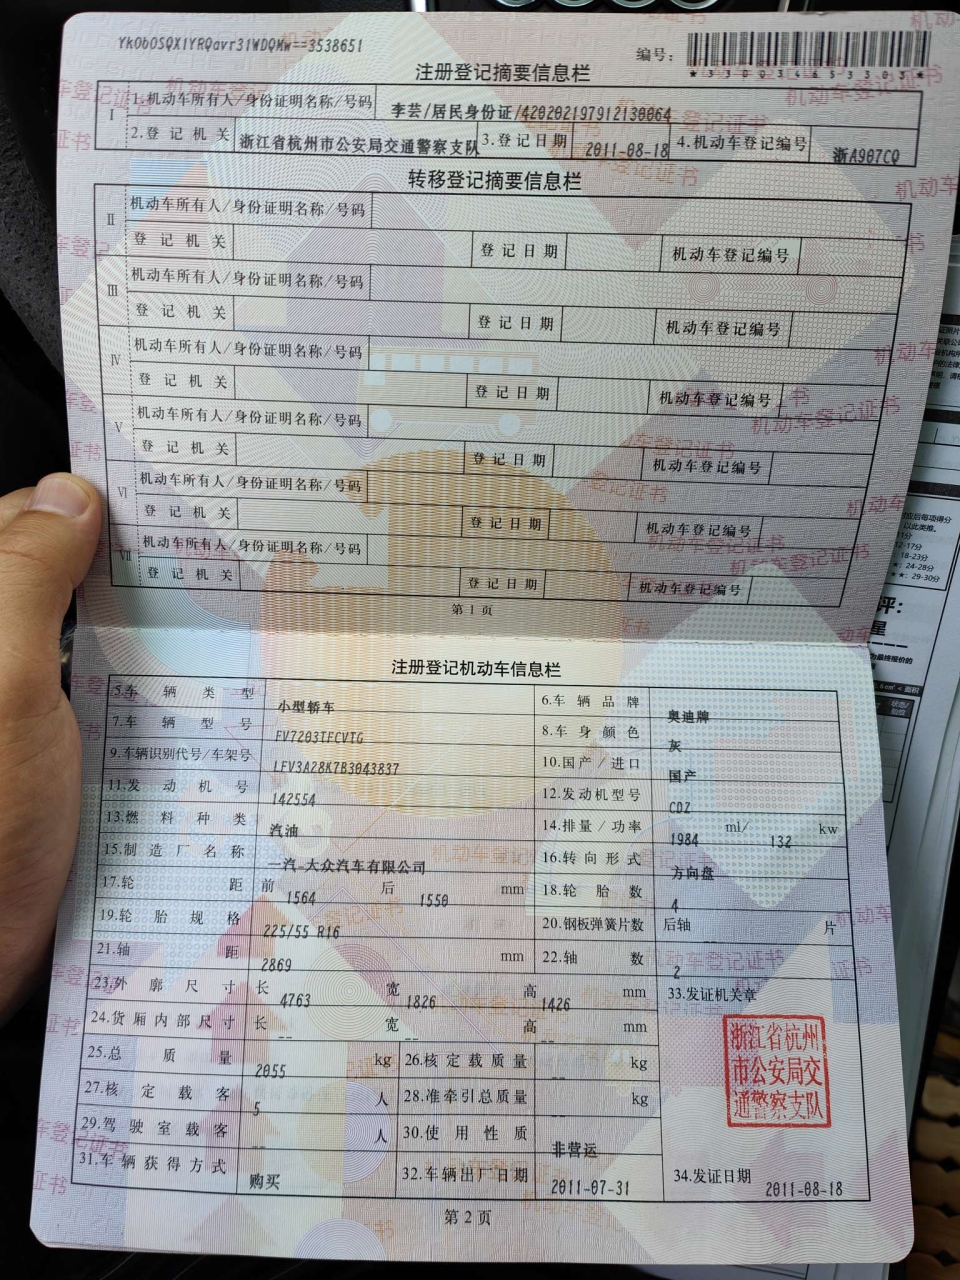 Yk0bOSQX1YRQavr31WDQMw==3538651
编号：
*330034653303*
注册登记摘要信息栏
Ⅰ 1.机动车所有人/身份证明名称/号码 李芸/居民身份证/420202197912130064
2.登记机关 浙江省杭州市公安局交通警察支队 3.登记日期 2011-08-18 4.机动车登记编号 浙A907CQ
转移登记摘要信息栏
Ⅱ 机动车所有人/身份证明名称/号码
登记机关 登记日期 机动车登记编号
Ⅲ 机动车所有人/身份证明名称/号码
登记机关 登记日期 机动车登记编号
Ⅳ 机动车所有人/身份证明名称/号码
登记机关 登记日期 机动车登记编号
Ⅴ 机动车所有人/身份证明名称/号码
登记机关 登记日期 机动车登记编号
Ⅵ 机动车所有人/身份证明名称/号码
登记机关 登记日期 机动车登记编号
Ⅶ 机动车所有人/身份证明名称/号码
登记机关 登记日期 机动车登记编号
第1页
注册登记机动车信息栏
5.车辆类型 小型轿车 6.车辆品牌 奥迪牌
7.车辆型号 FV7203TFCVTG 8.车身颜色 灰
9.车辆识别代号/车架号 LFV3A28K7B3043837 10.国产/进口 国产
11.发动机号 142554 12.发动机型号 CDZ
13.燃料种类 汽油 14.排量/功率 1984 ml/ 132 kw
15.制造厂名称 一汽-大众汽车有限公司 16.转向形式 方向盘
17.轮距 前 1564 后 1550 mm 18.轮胎数 4
19.轮胎规格 225/55 R16 20.钢板弹簧片数 后轴 -- 片
21.轴距 2869 mm 22.轴数 2
23.外廓尺寸 长 4763 宽 1826 高 1426 mm 33.发证机关章
24.货厢内部尺寸 长 -- 宽 -- 高 -- mm
浙江省杭州
市公安局交
通警察支队
25.总质量 2055 kg 26.核定载质量 -- kg
27.核定载客 5 人 28.准牵引总质量 -- kg
29.驾驶室载客 -- 人 30.使用性质 非营运
31.车辆获得方式 购买 32.车辆出厂日期 2011-07-31 34.发证日期 2011-08-18
第2页
12-17分
18-23分
24-28分
29-30分
评：
星